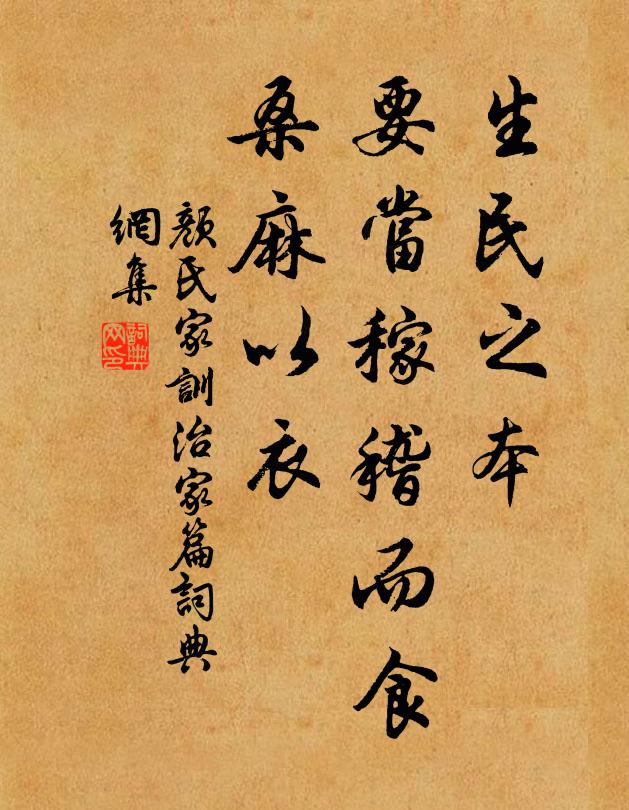 生民之本
要當稼穡而食
桑麻以衣
顏氏家訓治家篇詞典
網集
詞典網印